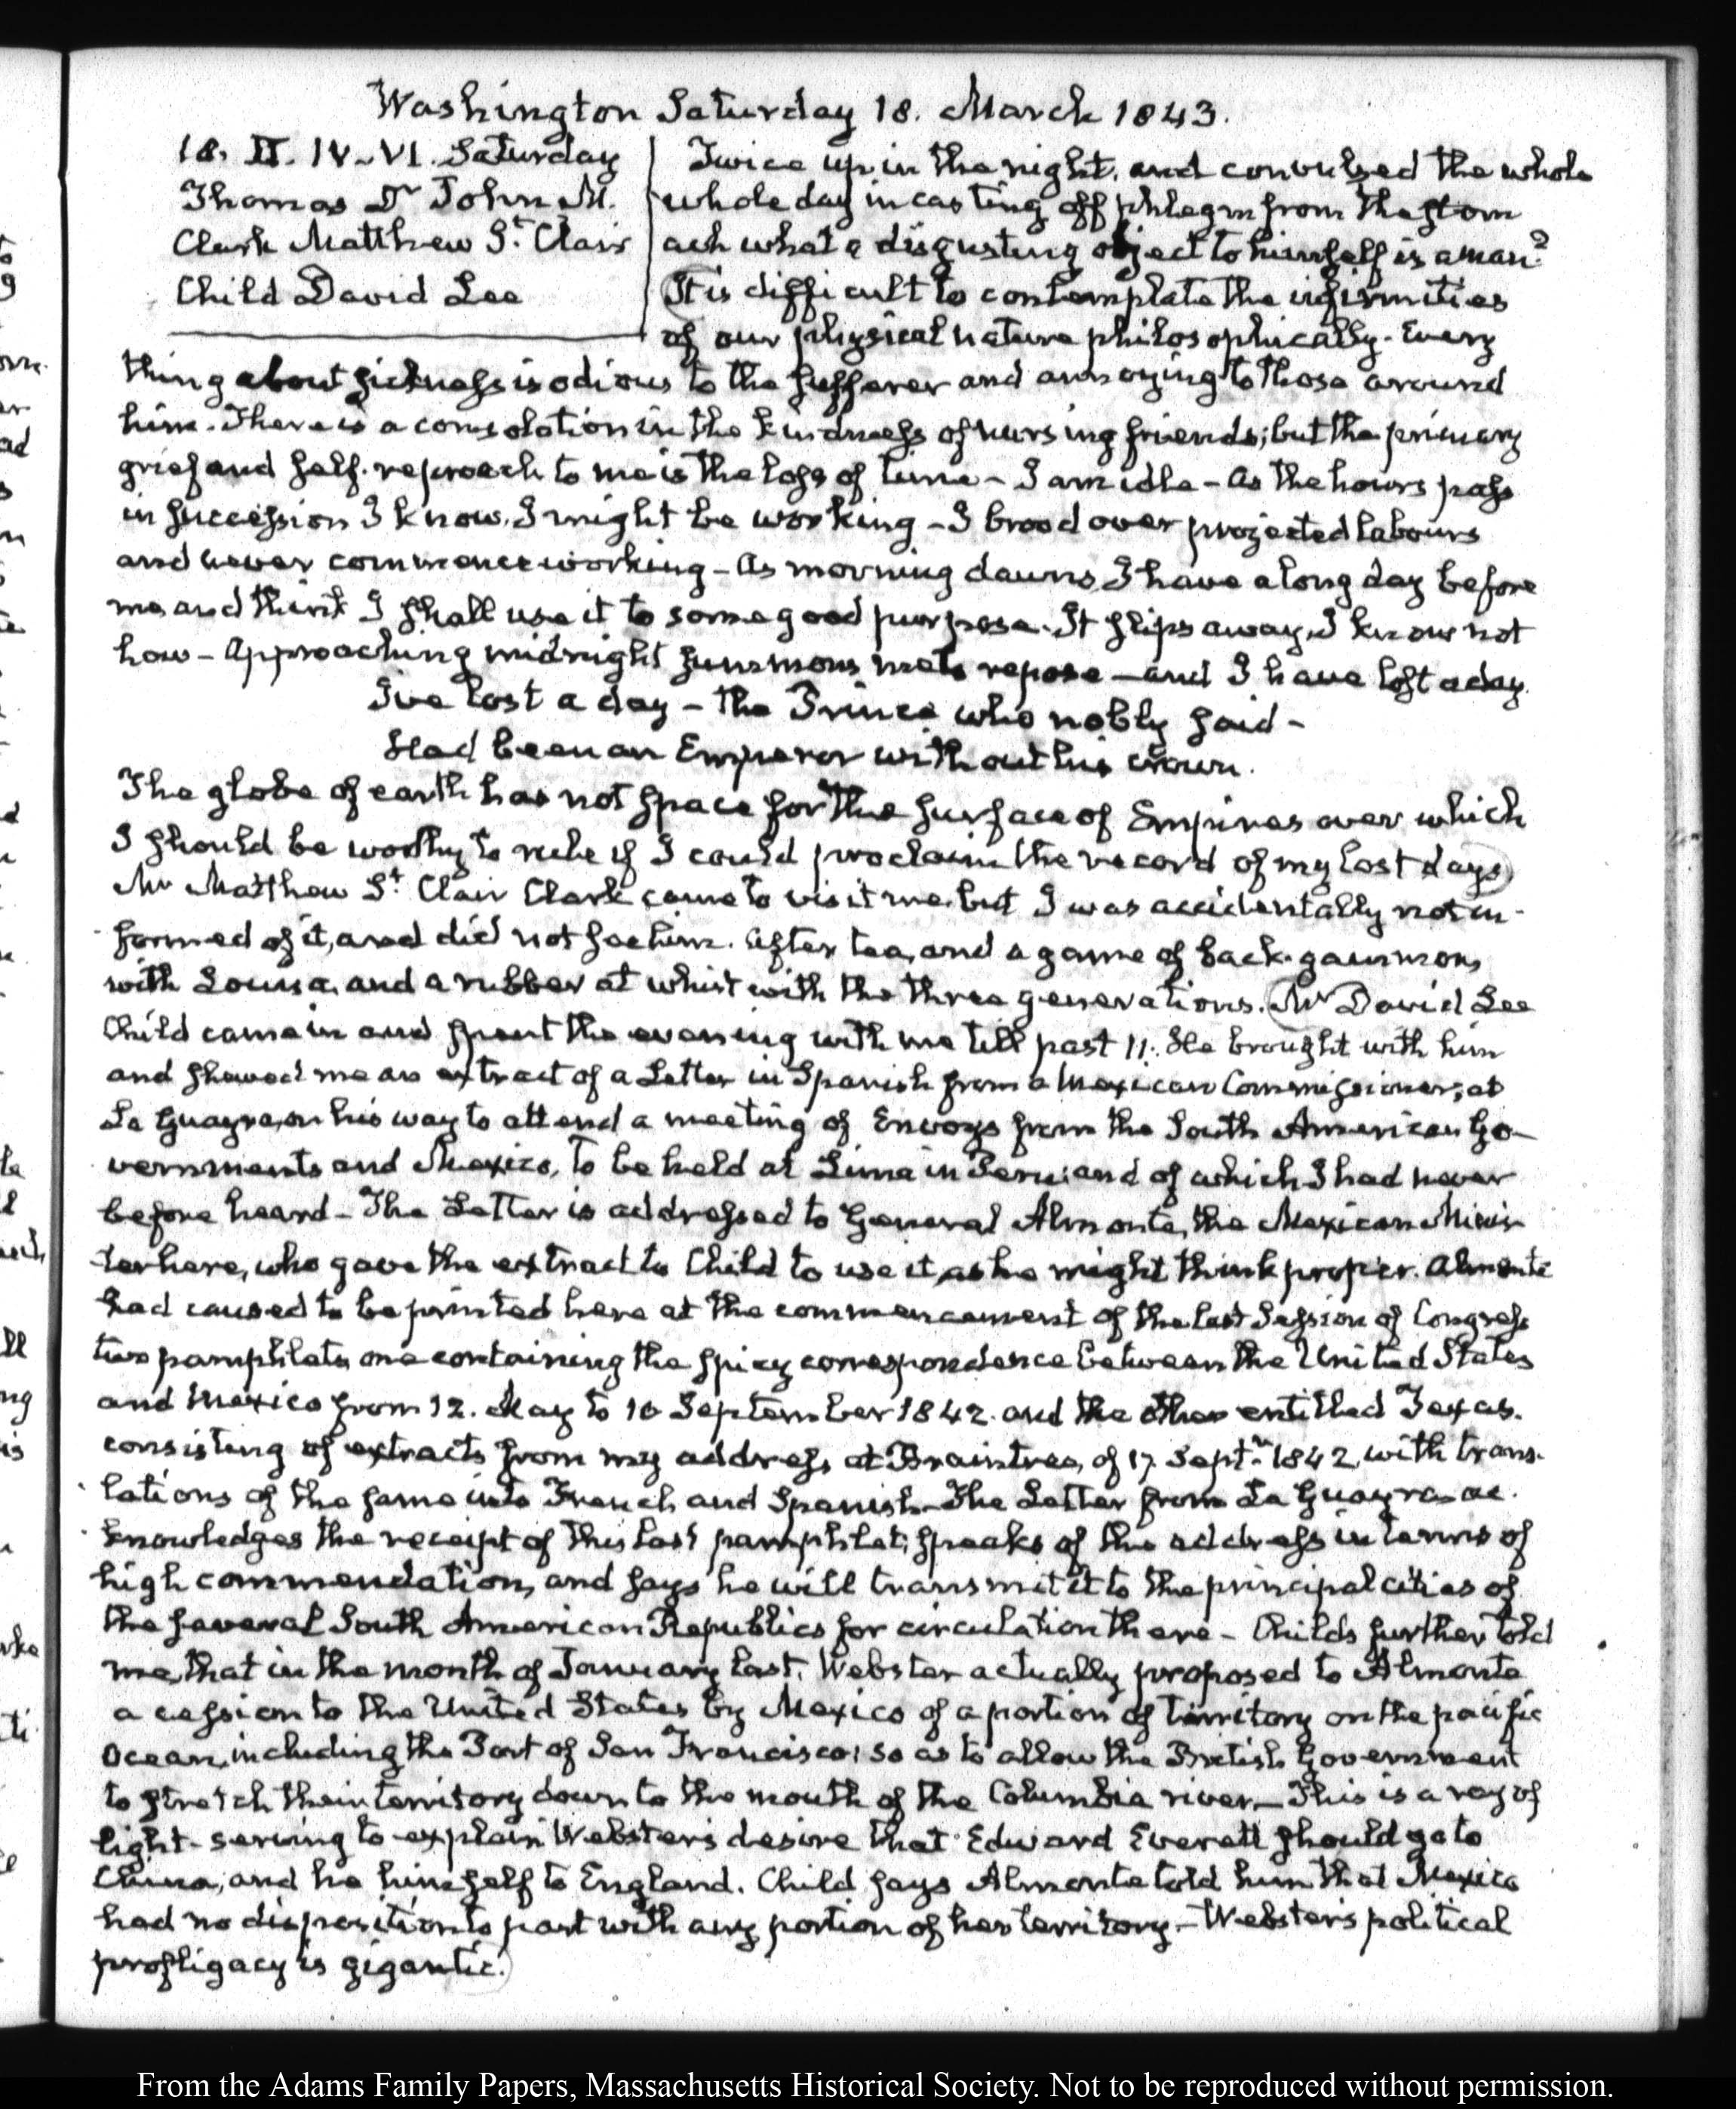 Washington Saturday 18. March 1843.
18. II. IV-VI. Saturday
Thomas Dr John M.
Clark Matthew St. Clair
Child David Lee
Twice up in the night, and convulsed the whole
whole day in casting off phlegm from the stom
ach what a disgusting object to himself is a man?
It is difficult to contemplate the infirmities
of our physical nature philosophically. Every
thing about sickness is odious to the sufferer and annoying to those around
him. There is a consolation in the kindness of nursing friends; but the primary
grief and self-reproach to me is the loss of time - I am idle - As the hours pass
in succession I know, I might be working - I brood over projected labours
and never commence working - As morning dawns, I have a long day before
me and think I shall use it to some good purpose. It slips away, I know not
how - Approaching midnight summons me to repose - and I have lost a day.
I've lost a day - the Prince who nobly said -
Had been an Emperor without his crown.
The globe of earth has not space for the surface of Empires over which
I should be worthy to rule if I could proclaim the record of my lost days
Mr Matthew St. Clair Clark came to visit me but I was accidentally not in-
formed of it, and did not see him. After tea, and a game of back-gammon,
with Louisa, and a rubber at whist with the three generations. Mr David Lee
Child came in and spent the evening with me till past 11. He brought with him
and shewed me an extract of a Letter in Spanish from a Mexican Commissioner, at
La Guayra, on his way to attend a meeting of Envoys from the South American Go-
vernments and Mexico, to be held at Lima in Peru; and of which I had never
before heard - The Letter is addressed to General Almonte, the Mexican Minis-
ter here, who gave the extract to Child to use it as he might think proper. Almonte
had caused to be printed here at the commencement of the last Session of Congress
two pamphlets, one containing the spicy correspondence between the United States
and Mexico from 12. May to 10 September 1842. and the other entitled Texas.
consisting of extracts from my address, at Braintree, of 17. Septr. 1842, with trans-
lations of the same into French and Spanish - The Letter from La Guayra ac-
knowledges the receipt of this last pamphlet; speaks of the address in terms of
high commendation, and says he will transmit it to the principal cities of
the several South American Republics for circulation there - Childs further told
me, that in the month of January last, Webster actually proposed to Almonte
a cession to the United States by Mexico of a portion of territory on the pacific
Ocean, including the Port of San Francisco; so as to allow the British Government
to stretch their territory down to the mouth of the Columbia river - This is a ray of
light - serving to explain Webster's desire that Edward Everett should go to
China, and he himself to England. Child says Almonte told him that Mexico
had no disposition to part with any portion of her territory - Webster's political
profligacy is gigantic.
From the Adams Family Papers, Massachusetts Historical Society. Not to be reproduced without permission.